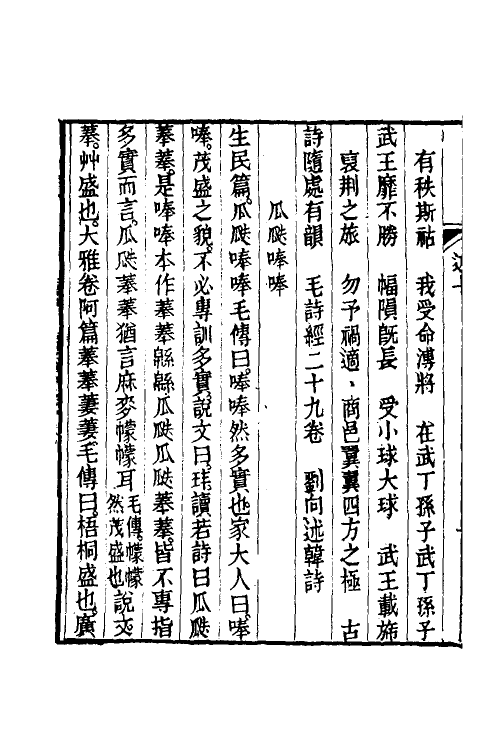 有秩斯祜　我受命溥將　在武丁孫子武丁孫子
武王靡不勝　幅隕旣長　受小球大球　武王載斾
裒荆之旅　勿予禍適、商邑翼翼四方之極　古
詩隨處有韻　毛詩經二十九卷　劉向述韓詩
瓜瓞唪唪
生民篇。瓜瓞唪唪毛傳曰。唪唪然多實也。家大人曰。唪
唪。茂盛之貌。不必專訓多實。說文曰。玤讀若詩曰瓜瓞
菶菶。是唪唪本作菶菶緜緜瓜瓞瓜瓞菶菶。皆不專指
多實而言。瓜瓞菶菶猶言麻麥幪幪耳毛傳。幪幪然茂盛也說文
菶。艸盛也。大雅卷阿篇菶菶萋萋。毛傳曰。梧桐盛也。廣